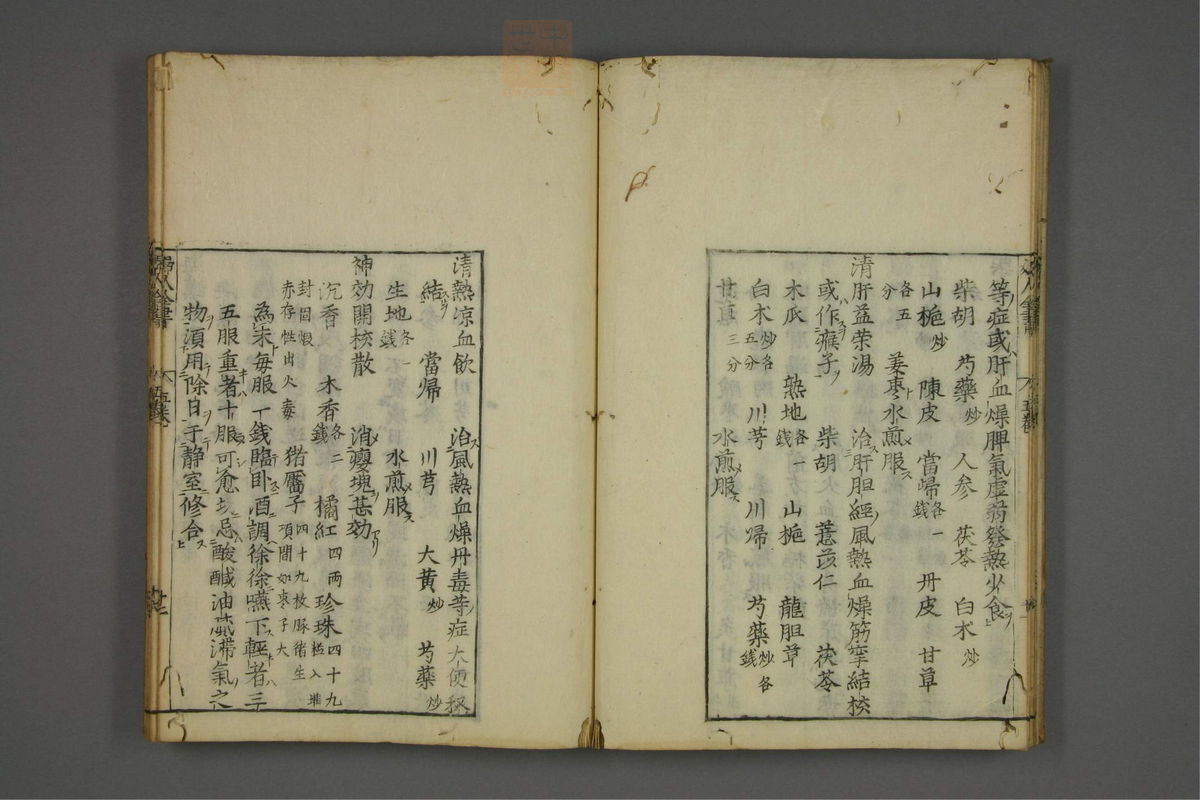 等症或肝血燥脾氣虛弱發熱少食
柴胡 芍藥炒 人參 茯苓 白朮炒
山梔炒 陳皮 當歸各一錢 丹皮 甘草
各五分 姜棗水煎服
清肝益荣湯 治肝胆經風熱血燥筋挛結核
或作瘊子 柴胡 薏苡仁 茯苓
木瓜 熟地各一錢 山梔 龍胆草
白朮炒各五分 川芎 川歸 芍藥炒各錢
甘草三分 水煎服
清熱凉血飲 治風熱血燥丹毒等症大便秘
結 當帰 川芎 大黄炒 芍藥炒
生地各一錢 水煎服
神効開核散 消癭塊甚効
沉香 木香各二錢 橘紅四両 珍珠四十九粒入
封固煅赤存性出火毒 猪靨子四十九枚豚猪生項間如棗子大
為末每服一錢臨卧酒調徐徐嚥下輕者三
五服重者十服可愈 忌酸鹹油膩滞氣之
物須用除日于静室修合